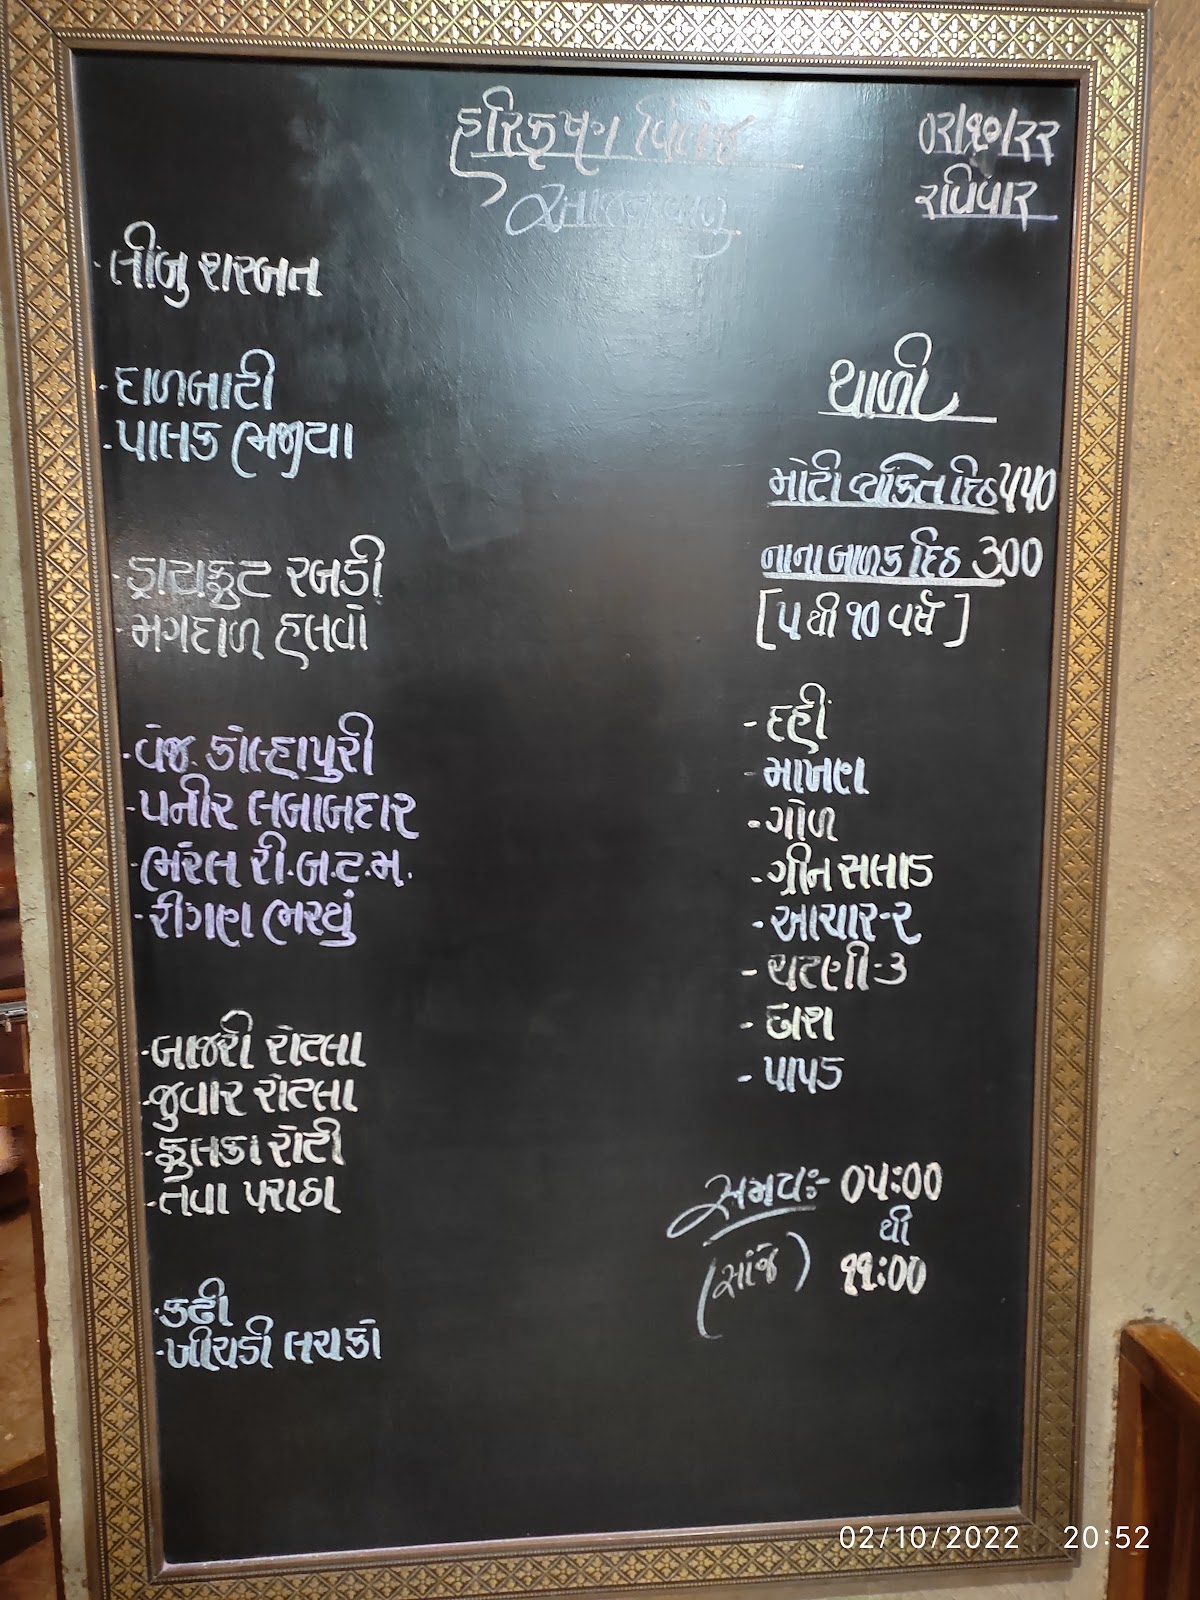 હરિકૃષ્ણ વિલેજ
આજનું મેનુ
૦૨/૧૦/૨૨
રવિવાર
લીંબુ શરબત
દાળબાટી
પાલક ભજીયા
ડ્રાયફ્રુટ રબડી
મગદાળ હલવો
વેજ. કોલ્હાપુરી
પનીર લબાબદાર
ભરેલ રી.બ.ટ.મ.
રીંગણ ભરથું
બાજરી રોટલા
જુવાર રોટલા
ફુલકા રોટી
તવા પરાઠા
કઢી
ખીચડી લચકો
થાળી
મોટી વ્યક્તિ દિઠ ૫૫૦
નાના બાળક દિઠ ૩૦૦
[૫ થી ૧૦ વર્ષ]
- દહીં
- માખણ
- ગોળ
- ગ્રીન સલાડ
- આચાર-૨
- ચટણી-૩
- છાશ
- પાપડ
સમયઃ- ૦૫:૦૦
થી
(સાંજે) ૧૧:૦૦
02/10/2022 20:52